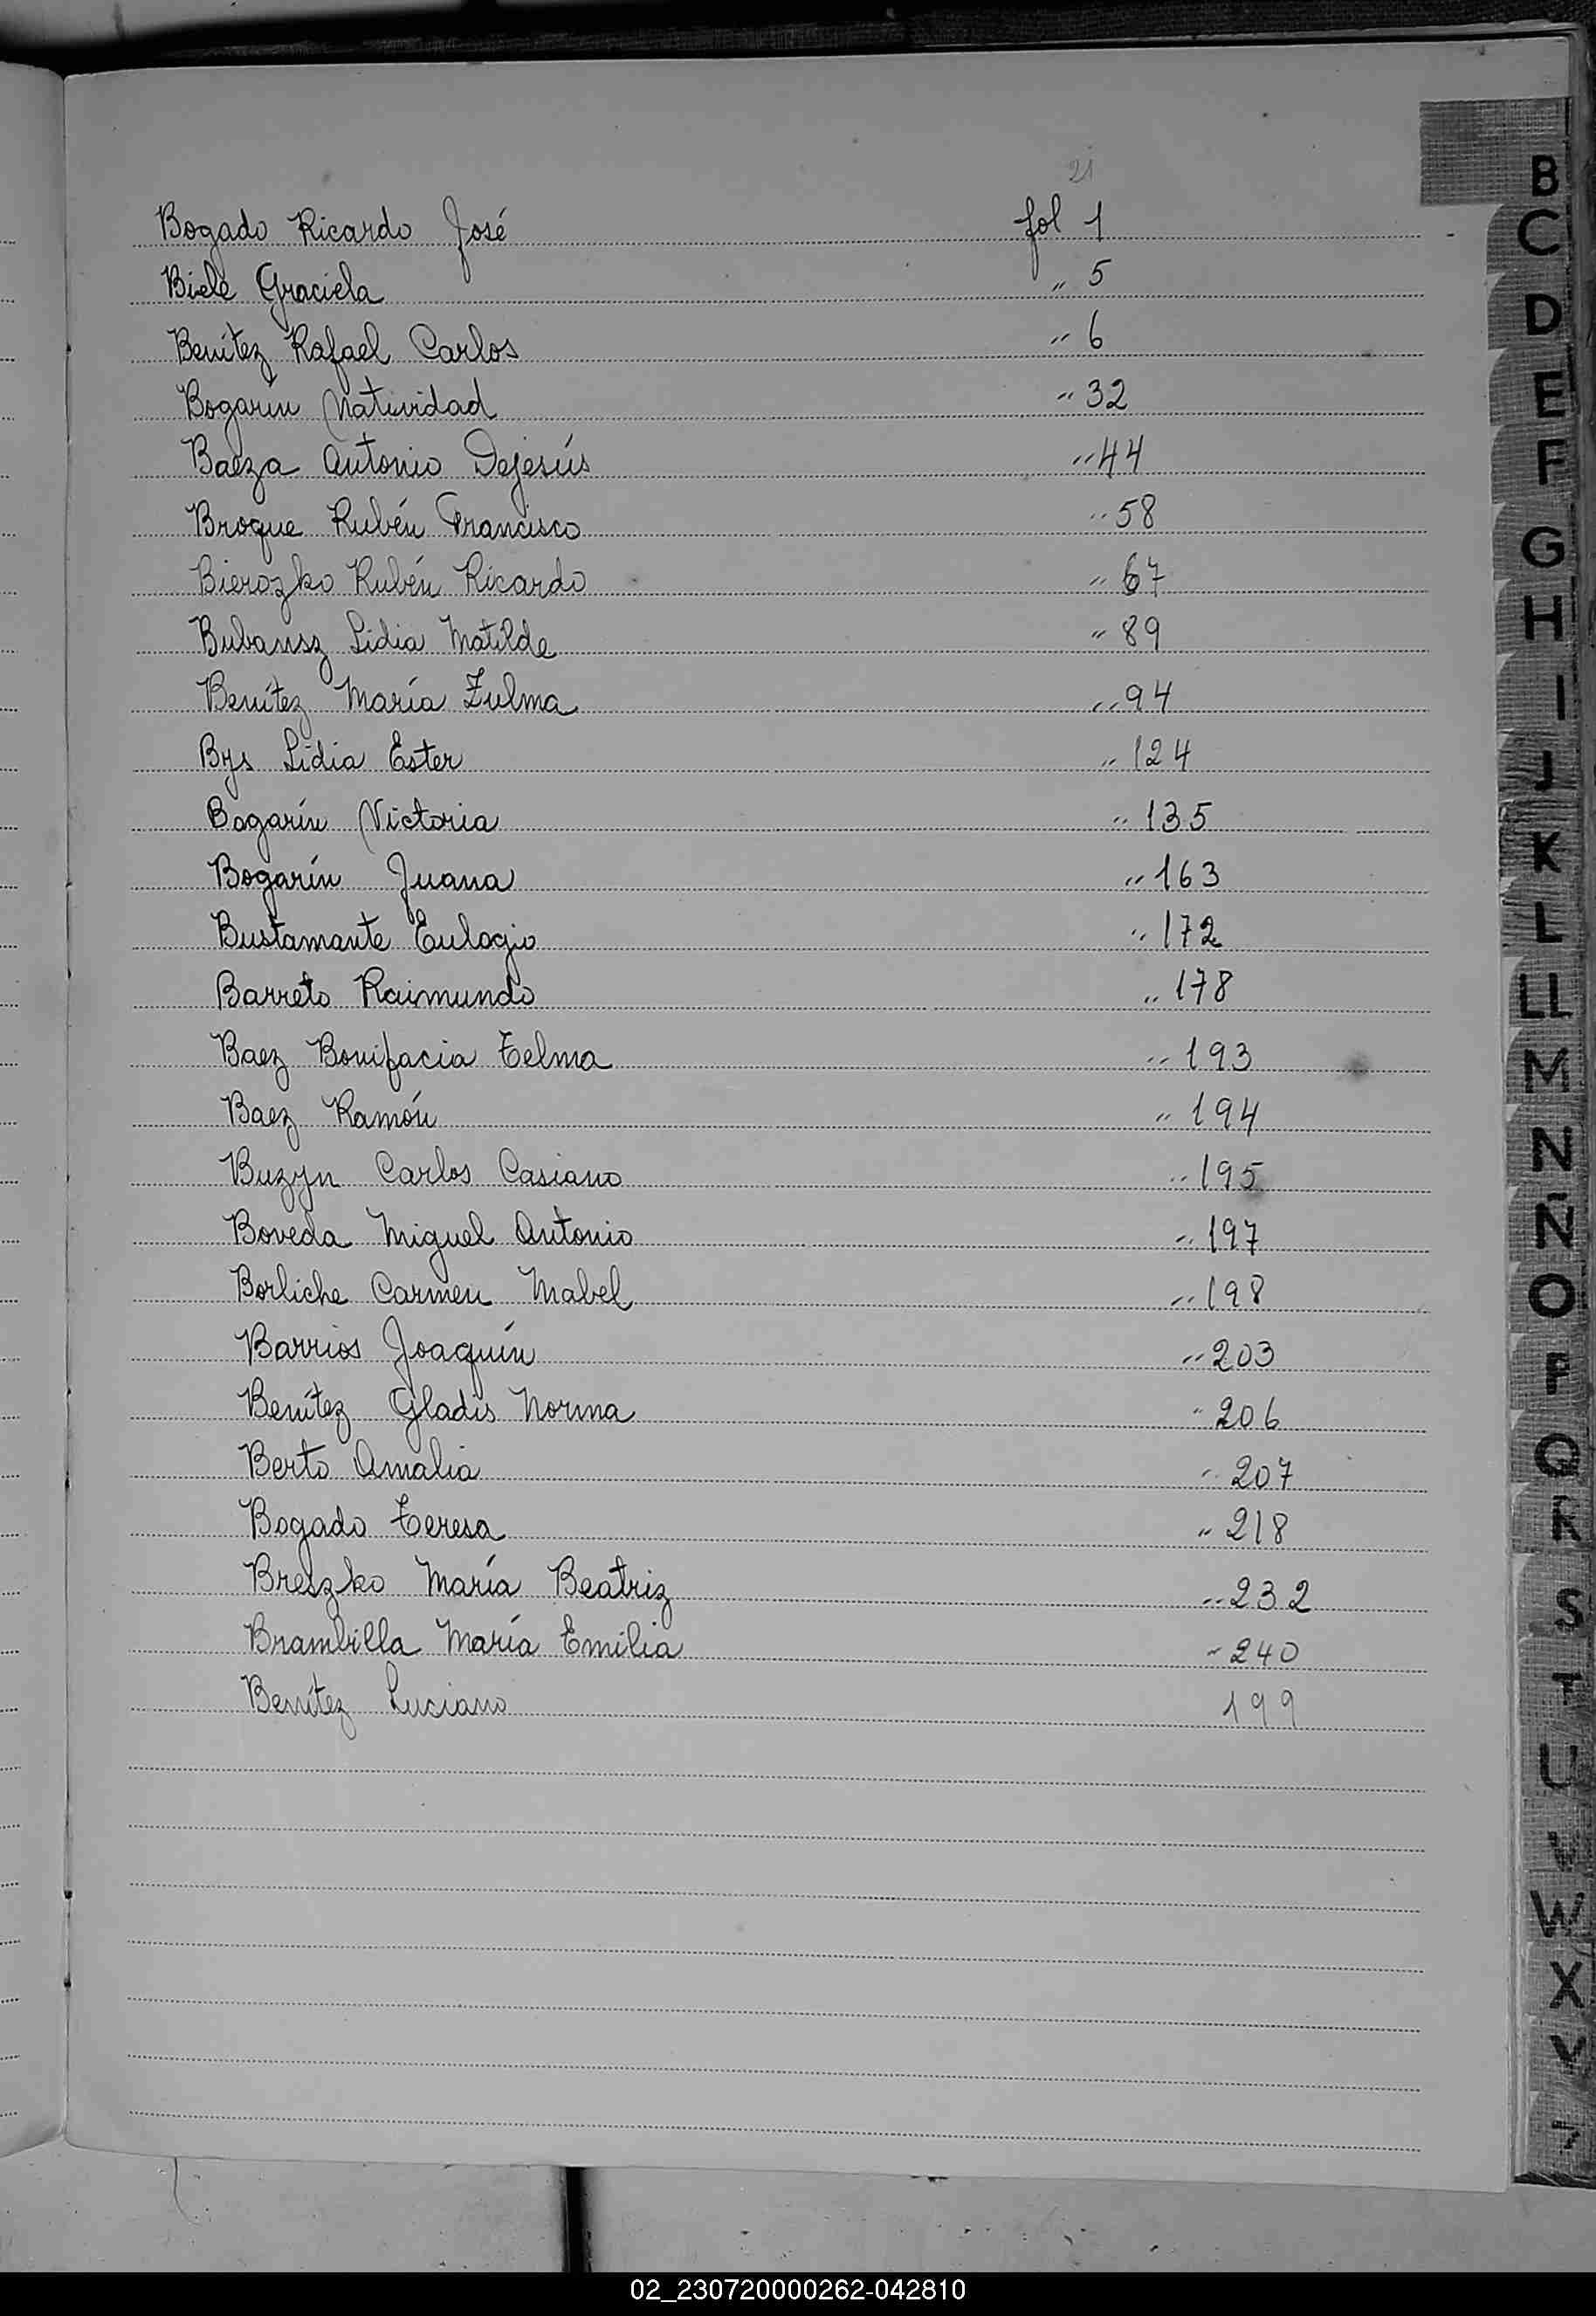 21
Bogado Ricardo José fol 1
Biele Graciela " 5
Benítez Rafael Carlos " 6
Bogarín Natividad " 32
Baeza Antonio Dejesús " 44
Broque Rubén Francisco " 58
Bierozko Rubén Ricardo " 67
Bubansz Lidia Matilde " 89
Benítez María Zulma " 94
Bys Lidia Ester " 124
Bogarín Victoria " 135
Bogarín Juana " 163
Bustamante Eulogio " 172
Barreto Raimundo " 178
Baez Bonifacia Telma " 193
Baez Ramón " 194
Buzyn Carlos Casiano " 195
Boveda Miguel Antonio " 197
Borliche Carmen Mabel " 198
Barrios Joaquín " 203
Benítez Gladis Norma " 206
Berto Amalia " 207
Bogado Teresa " 218
Breszko María Beatriz " 232
Brambilla María Emilia " 240
Benítez Luciano 199
B
C
D
E
F
G
H
I
J
K
L
LL
M
N
Ñ
O
P
Q
R
S
T
U
V
W
X
Y
02_230720000262-042810